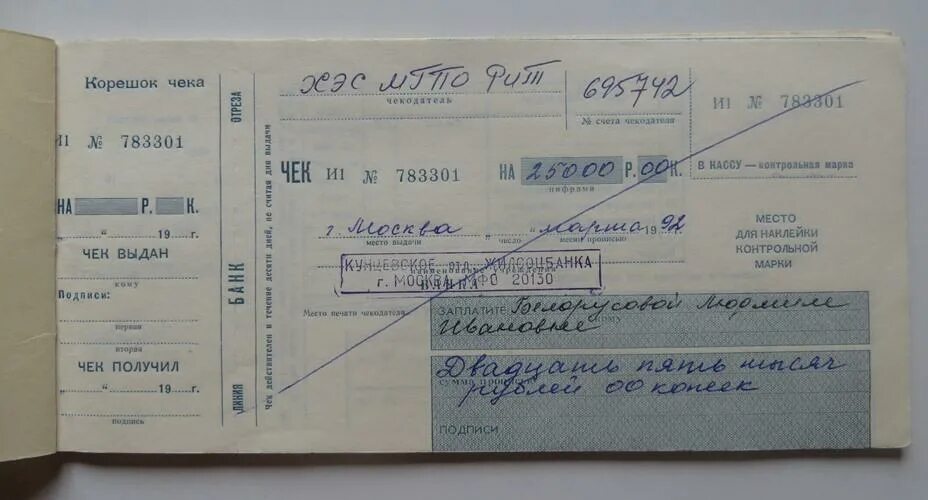 Корешок чека
И1 № 783301
НА Р. К.
„ “ 19 г.
ЧЕК ВЫДАН
кому
Подписи:
первая
вторая
ЧЕК ПОЛУЧИЛ
„ “ 19 г.
подпись
ЛИНИЯ БАНК ОТРЕЗА
Чек действителен в течение десяти дней, не считая дня выдачи
ХЭС МГПО РиТ
чекодатель
695742
№ счета чекодателя
И1 № 783301
В КАССУ — контрольная марка
ЧЕК И1 № 783301 НА 25000 Р. 00 К.
цифрами
г. Москва „ “ марта 1992
место выдачи число месяц прописью
МЕСТО
ДЛЯ НАКЛЕЙКИ
КОНТРОЛЬНОЙ
МАРКИ
КУНЦЕВСКОЕ отд. ЖИЛСОЦБАНКА
г. МОСКВА МФО 20130
наименование учреждения
БАНКА
Место печати чекодателя
ЗАПЛАТИТЕ Белорусовой Людмиле
Ивановне
кому
Двадцать пять тысяч
сумма прописью
рублей 00 копеек
ПОДПИСИ